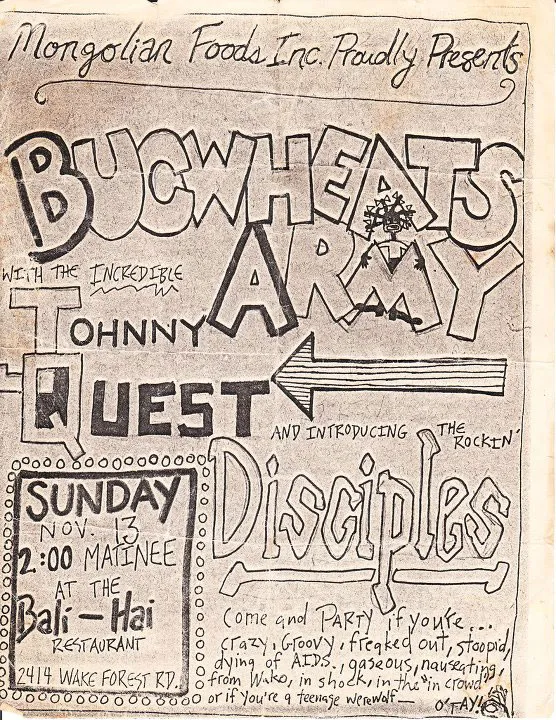 Mongolian Foods Inc. Proudly Presents
BUCWHEATS
ARMY
WITH THE INCREDIBLE
JOHNNY
QUEST
AND INTRODUCING THE
ROCKIN'
Disciples
SUNDAY
NOV. 13
2:00 MATINEE
AT THE
Bali-Hai
RESTAURANT
2414 WAKE FOREST RD.
Come and PARTY if you're...
crazy, Groovy, freaked out, stoopid,
dying of AIDS., gaseous, nauseating,
from Wake, in shock, in the "in crowd"
or if you're a teenage werewolf—
O'TAY!